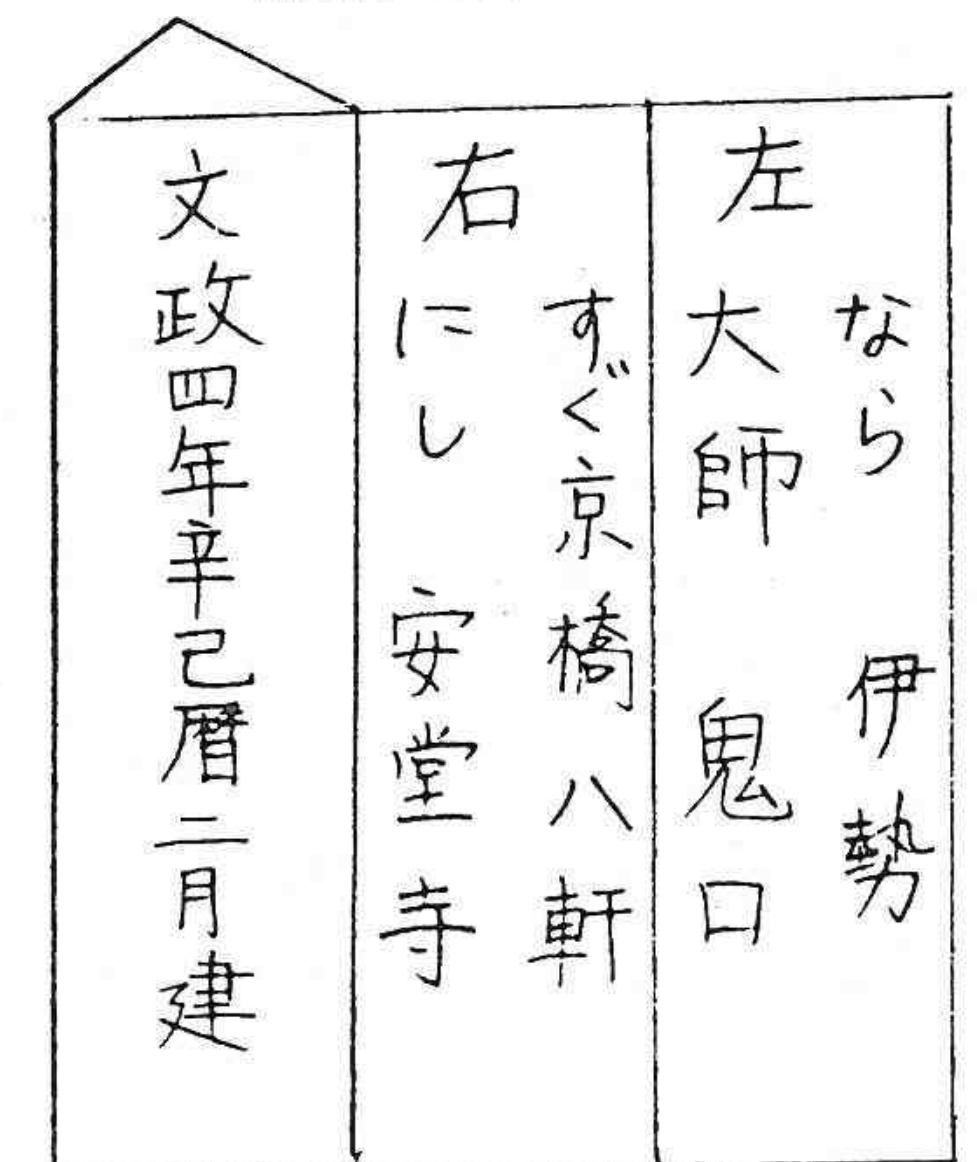 左
なら 伊勢
大師 鬼口
右
すぐ京橋八軒
にし 安堂寺
文政四年辛己暦二月建